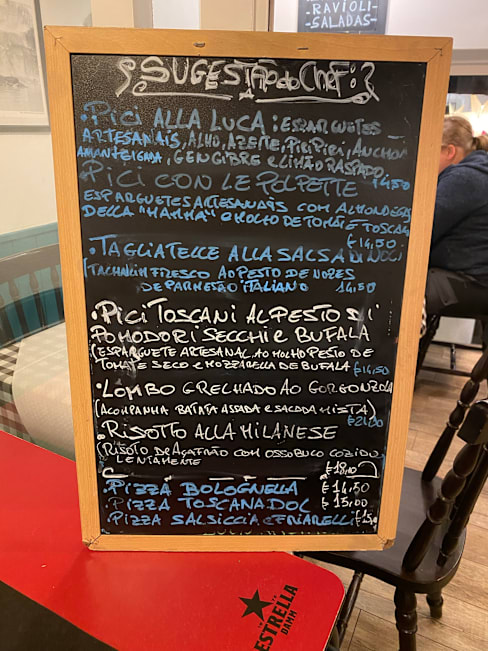 RAVIOLI-
-SALADAS-
SUGESTÃO do CHEF:
•PICI ALLA LUCA: ESPARGUETES
ARTESANAIS, ALHO, AZEITE, PIRIPIRI, ANCHOVA
AMANTEIGADA, GENGIBRE e LIMÃO RASPADO
•PICI CON LE POLPETTE 14,50
ESPARGUETES ARTESANAIS COM ALMONDEGAS
DELLA "MAMMA" O MOLHO DE TOMATE TOSCANO
€14,50
•TAGLIATELLE ALLA SALSA DI NOCI
(TAGLIATELLE FRESCO AO PESTO DE NOZES
DE PARMESÃO ITALIANO 14,50
•PICI TOSCANI AL PESTO DI
POMODORI SECCHI e BUFALA
(ESPARGUETE ARTESANAL AO MOLHO PESTO DE
TOMATE SECO e MOZZARELLA DE BUFALA €14,50
•LOMBO GRELHADO AO GORGONZOLA
(ACOMPANHA BATATA ASSADA e SALADA MISTA)
€21,00
•RISOTTO ALLA MILANESE
(RISOTO DE AÇAFRÃO COM OSSOBUCO COZIDO
LENTAMENTE €18,00
•PIZZA BOLOGNELLA €14,50
•PIZZA TOSCANA DOL €15,00
•PIZZA SALSICCIA e FRIARELLI
ESTRELLA
DAMM